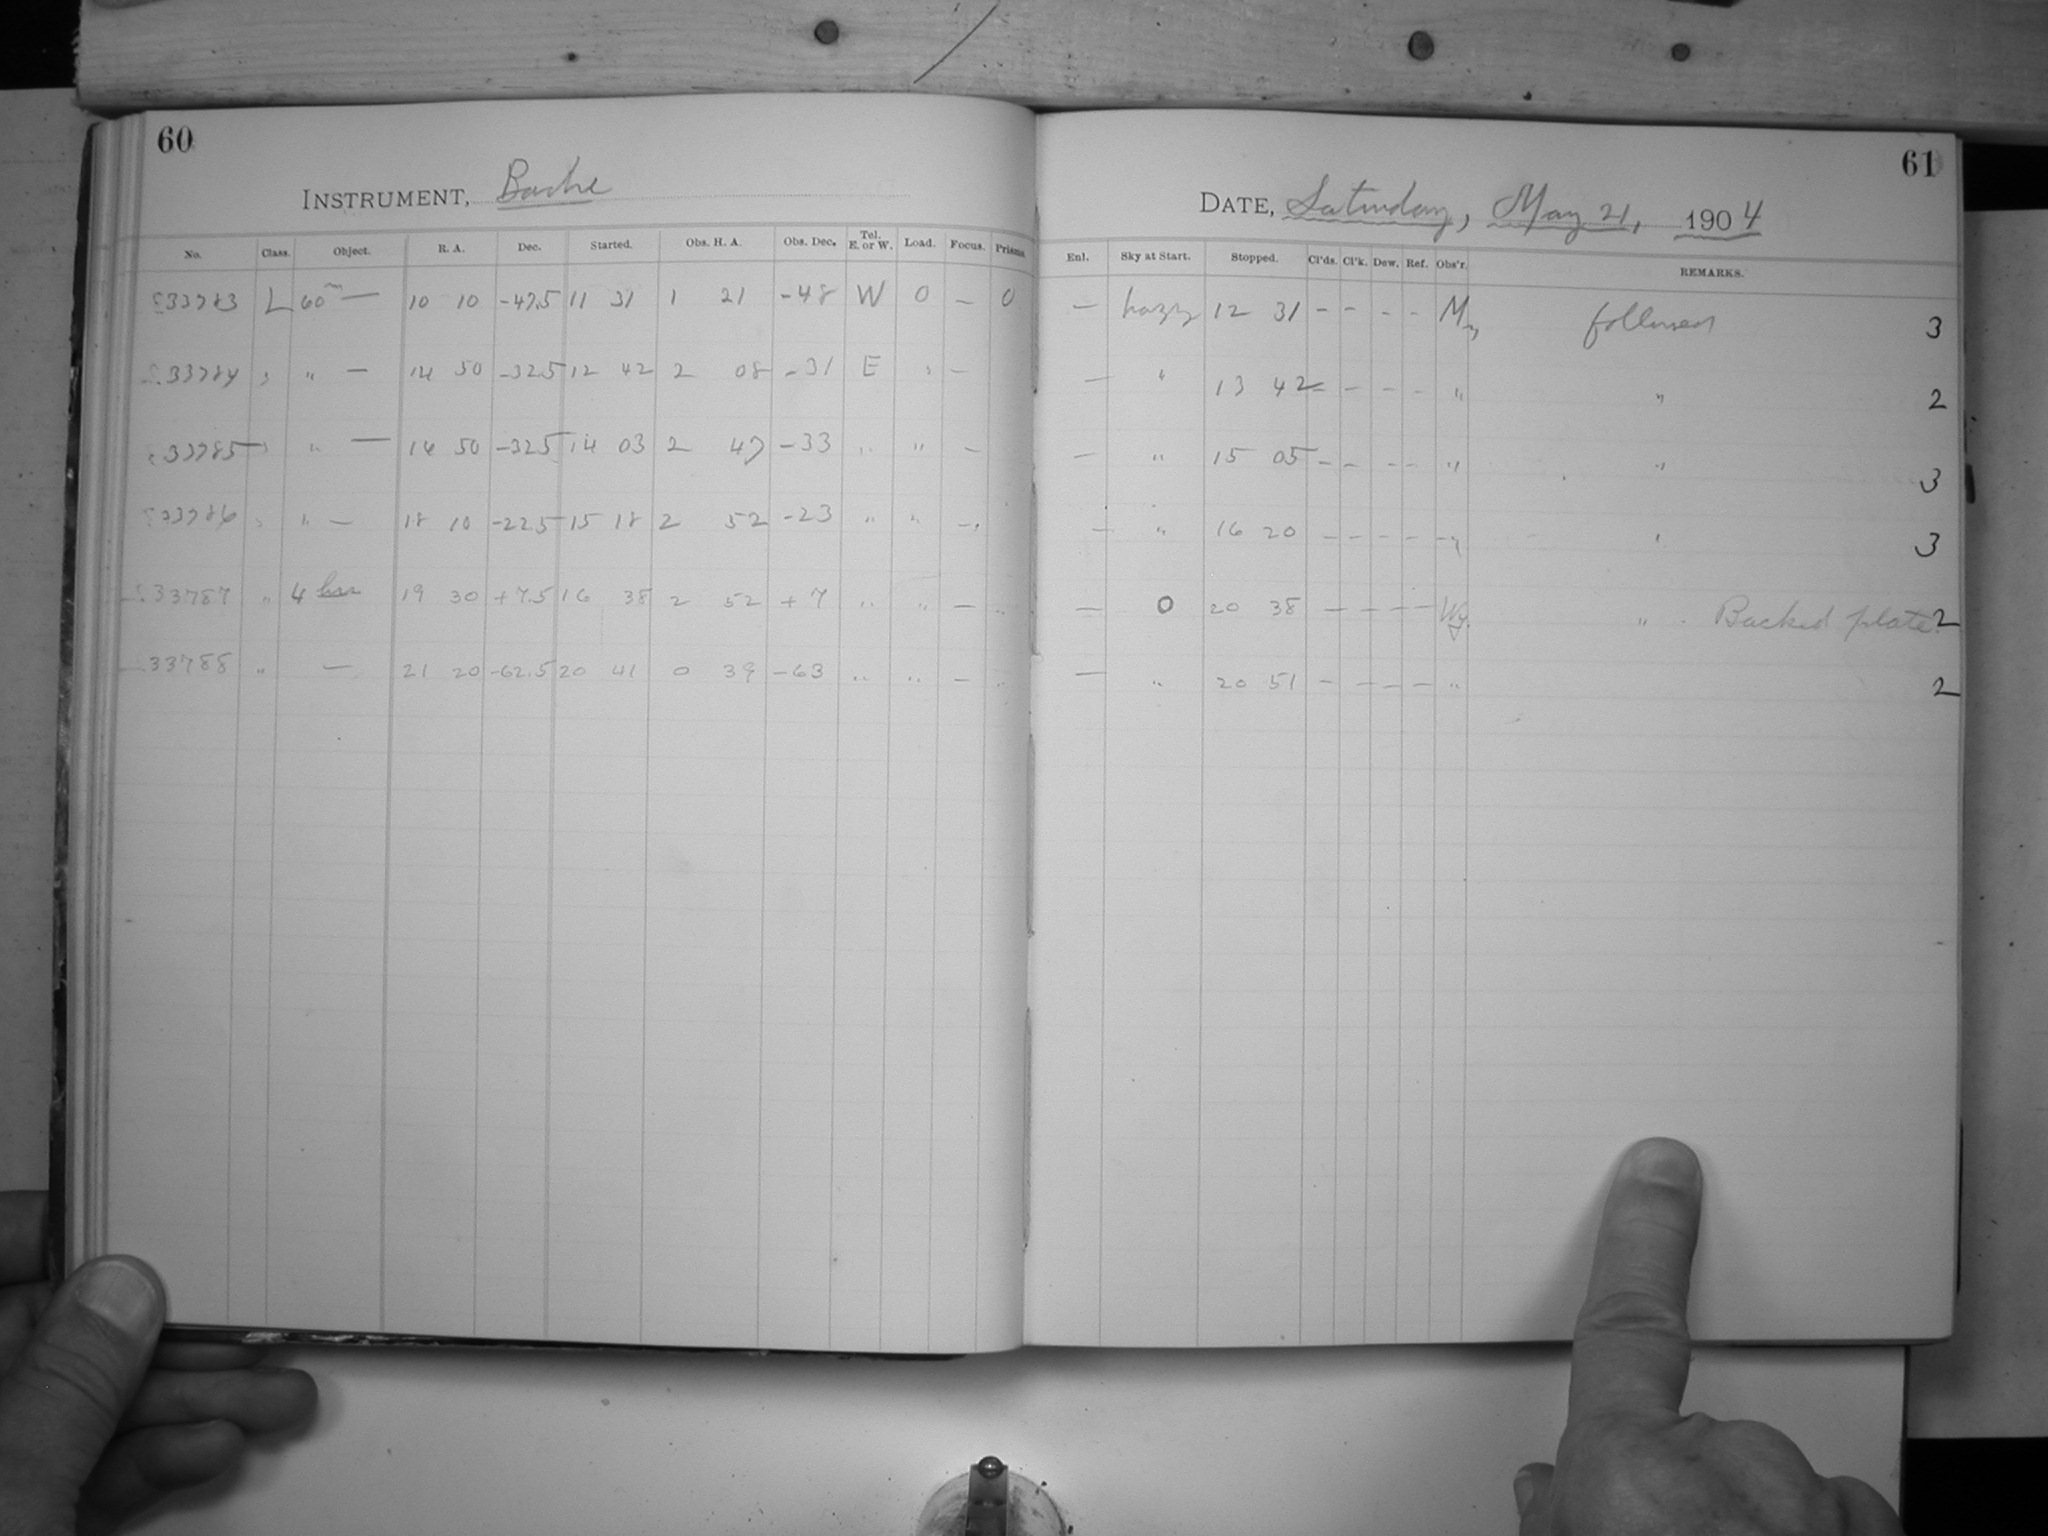 60
INSTRUMENT, Bache
No. Class. Object. R. A. Dec. Started. Obs. H. A. Obs. Dec. Tel. E. or W. Load. Focus. Prisms
33783 L 60m — 10 10 -47.5 11 31 1 21 -48 W 0 — 0
33784 " " — 14 50 -32.5 12 42 2 08 -31 E " —
33785 " " — 14 50 -32.5 14 03 2 47 -33 " " —
33786 " " — 18 10 -22.5 15 18 2 52 -23 " " —
33787 " 4 hrs 19 30 +7.5 16 38 2 52 +7 " " — "
33788 " — 21 20 -62.5 20 41 0 39 -63 " " — "
61
DATE, Saturday, May 21, 1904
Enl. Sky at Start. Stopped. Cl'ds. Cl'k. Dew. Ref. Obs'r. REMARKS.
— hazy 12 31 - - - - My followed 3
— " 13 42 - - - - " " 2
— " 15 05 - - - - " " 3
— " 16 20 - - - - " " 3
— 0 20 38 - - - - Wy. " . Backed plate. 2
— " 20 51 - - - - " 2